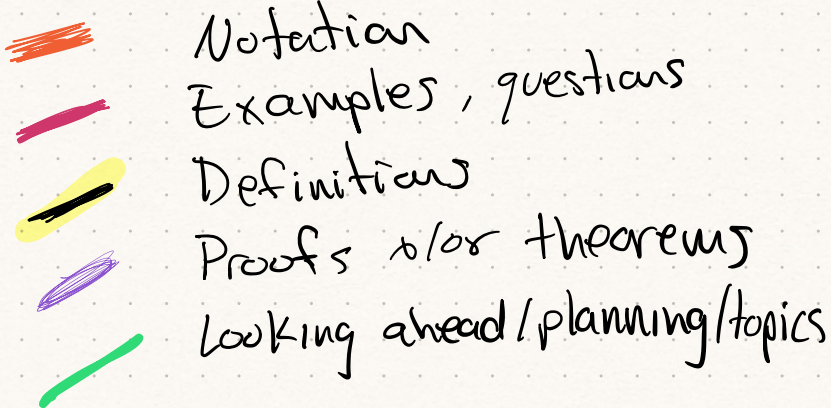 Notation
Examples, questions
Definitions
Proofs +/or theorems
Looking ahead/planning/topics